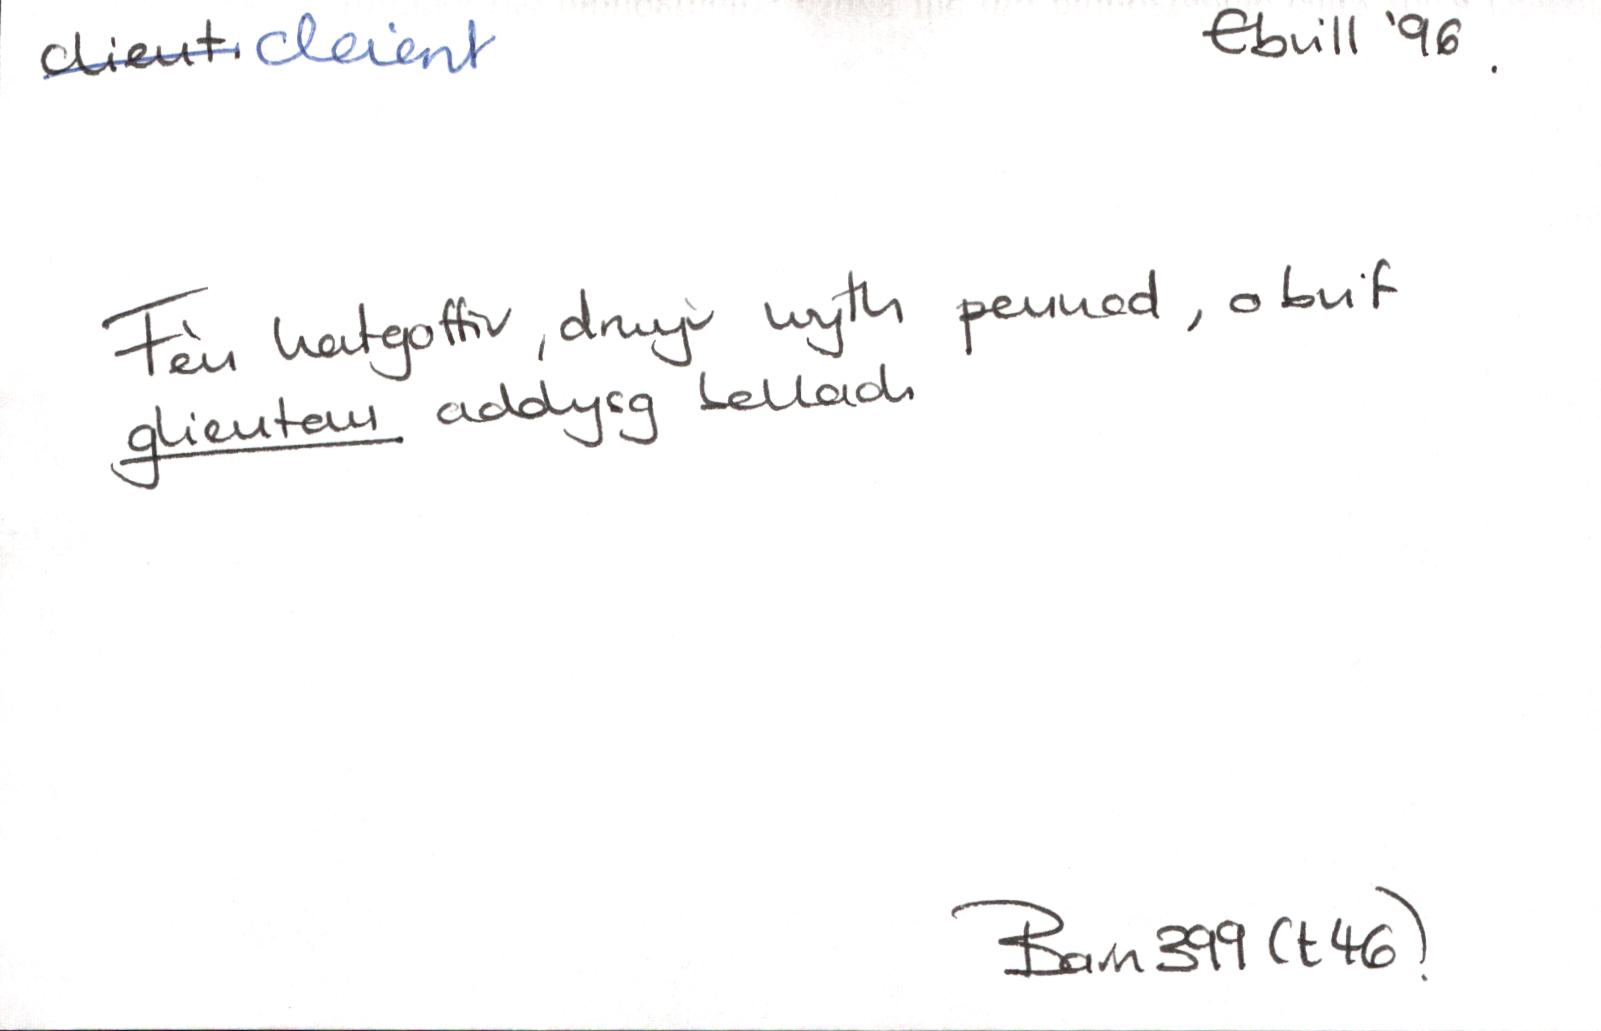 client. cleient Ebrill '96.
Fe'n hatgoffir, drwy'r wyth pennod, o brif
glientau addysg bellach
Barn 399 (t 46).